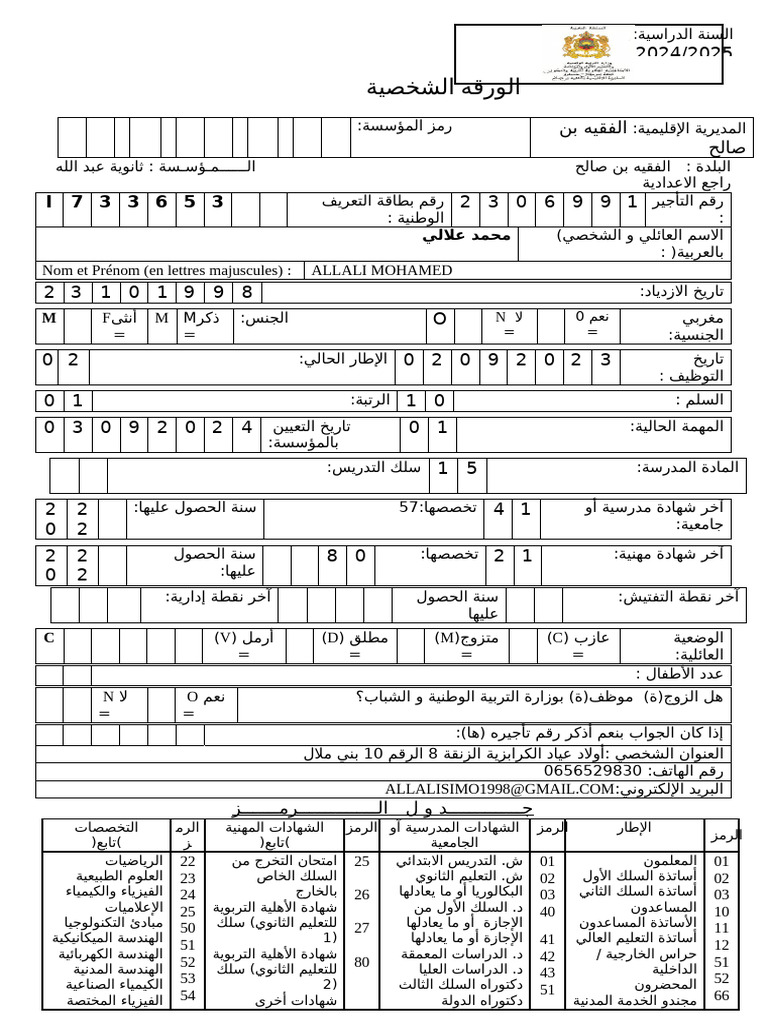 السنة الدراسية:
2024/2025
الورقة الشخصية
المديرية الإقليمية: الفقيه بن صالح رمز المؤسسة:
البلدة : الفقيه بن صالح الـــــمـؤسـسة : ثانوية عبد الله
راجع الاعدادية
رقم التأجير : 2 3 0 6 9 9 1 رقم بطاقة التعريف الوطنية : I 7 3 3 6 5 3
الاسم العائلي و الشخصي) بالعربية( : محمد علالي
Nom et Prénom (en lettres majuscules) : ALLALI MOHAMED
تاريخ الازدياد: 2 3 1 0 1 9 9 8
مغربي الجنسية: نعم O = لا N = O الجنس: ذكرM = M أنثىF = M
تاريخ التوظيف : 0 2 0 9 2 0 2 3 الإطار الحالي: 0 2
السلم : 1 0 الرتبة: 0 1
المهمة الحالية: 0 1 تاريخ التعيين بالمؤسسة: 0 3 0 9 2 0 2 4
المادة المدرسة: 1 5 سلك التدريس:
آخر شهادة مدرسية أو جامعية: 4 1 تخصصها:57 سنة الحصول عليها: 2 0 2 2
آخر شهادة مهنية: 2 1 تخصصها: 8 0 سنة الحصول عليها: 2 0 2 2
آخر نقطة التفتيش: سنة الحصول عليها آخر نقطة إدارية:
الوضعية العائلية: عازب (C) = متزوج(M) = مطلق (D) = أرمل (V) = C
عدد الأطفال :
هل الزوج(ة) موظف(ة) بوزارة التربية الوطنية و الشباب؟ نعم O = لا N =
إذا كان الجواب بنعم أذكر رقم تأجيره (ها):
العنوان الشخصي :أولاد عياد الكرابزية الزنقة 8 الرقم 10 بني ملال
رقم الهاتف: 0656529830
البريد الإلكتروني:ALLALISIMO1998@GMAIL.COM
جـــــدول الـــــترمـــــز
الرمز الإطار الرمز الشهادات المدرسية أو الجامعية الرمز الشهادات المهنية )تابع( الرمز التخصصات )تابع(
01 المعلمون
02 أساتذة السلك الأول
03 أساتذة السلك الثاني
10 المساعدون
11 الأساتذة المساعدون
12 أساتذة التعليم العالي
51 حراس الخارجية / الداخلية
52 المحضرون
66 مجندو الخدمة المدنية
01 ش. التدريس الابتدائي
02 ش. التعليم الثانوي
03 البكالوريا أو ما يعادلها
40 د. السلك الأول من الإجازة أو ما يعادلها
41 الإجازة أو ما يعادلها
42 د. الدراسات المعمقة
43 د. الدراسات العليا
51 دكتوراه السلك الثالث
دكتوراه الدولة
25 امتحان التخرج من السلك الخاص بالخارج
26 شهادة الأهلية التربوية للتعليم الثانوي) سلك 1)
27 شهادة الأهلية التربوية للتعليم الثانوي) سلك 2)
80 شهادات أخرى
22 الرياضيات
23 العلوم الطبيعية
24 الفيزياء والكيمياء
25 الإعلاميات
50 مبادئ التكنولوجيا
51 الهندسة الميكانيكية
52 الهندسة الكهربائية
53 الهندسة المدنية
54 الكيمياء الصناعية
الفيزياء المختصة